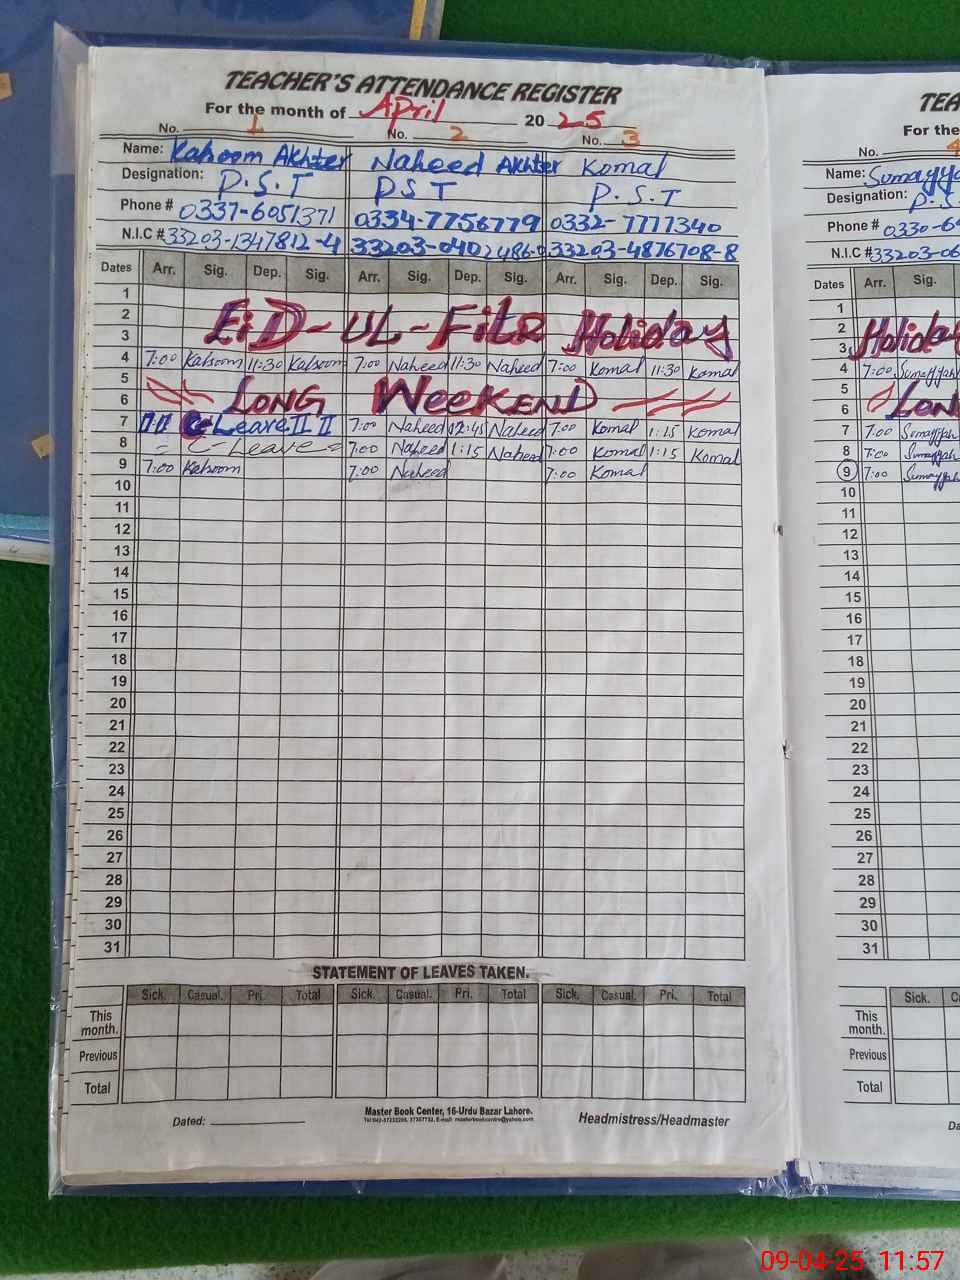 TEACHER'S ATTENDANCE REGISTER
For the month of April 2025
No. 1 No. 2 No. 3
Name: Kalsoom Akhter Naheed Akhter Komal
Designation: P.S.T PST P.S.T
Phone # 0337-6051371 0334-7756779 0332-7777340
N.I.C # 33203-1347812-4 33203-0402486-0 33203-4876708-8
Dates Arr. Sig. Dep. Sig. Arr. Sig. Dep. Sig. Arr. Sig. Dep. Sig.
1
2
3 EiD-UL-Fitr Holiday
4 7:00 Kalsoom 11:30 Kalsoom 7:00 Naheed 11:30 Naheed 7:00 Komal 11:30 Komal
5
6 LONG WEEKEND
7 C-Leave 7:00 Naheed 12:45 Naheed 7:00 Komal 1:15 Komal
8 C-Leave 7:00 Naheed 1:15 Naheed 7:00 Komal 1:15 Komal
9 7:00 Kalsoom 7:00 Naheed 7:00 Komal
10
11
12
13
14
15
16
17
18
19
20
21
22
23
24
25
26
27
28
29
30
31
STATEMENT OF LEAVES TAKEN.
Sick. Casual. Pri. Total Sick. Casual. Pri. Total Sick. Casual. Pri. Total
This month.
Previous
Total
Master Book Center, 16-Urdu Bazar Lahore.
Dated: Headmistress/Headmaster
TEA
For the
No. 4
Name: Sumayya
Designation: P.S.
Phone # 0330-69
N.I.C # 33203-06
Dates Arr. Sig.
1
2 Holida
3
4 7:00 Sumayyah
5
6 Lon
7 7:00 Sumayyah
8 7:00 Sumayyah
9 7:00 Sumayyah
10
11
12
13
14
15
16
17
18
19
20
21
22
23
24
25
26
27
28
29
30
31
Sick. C
This month.
Previous
Total
Da
09-04-25 11:57